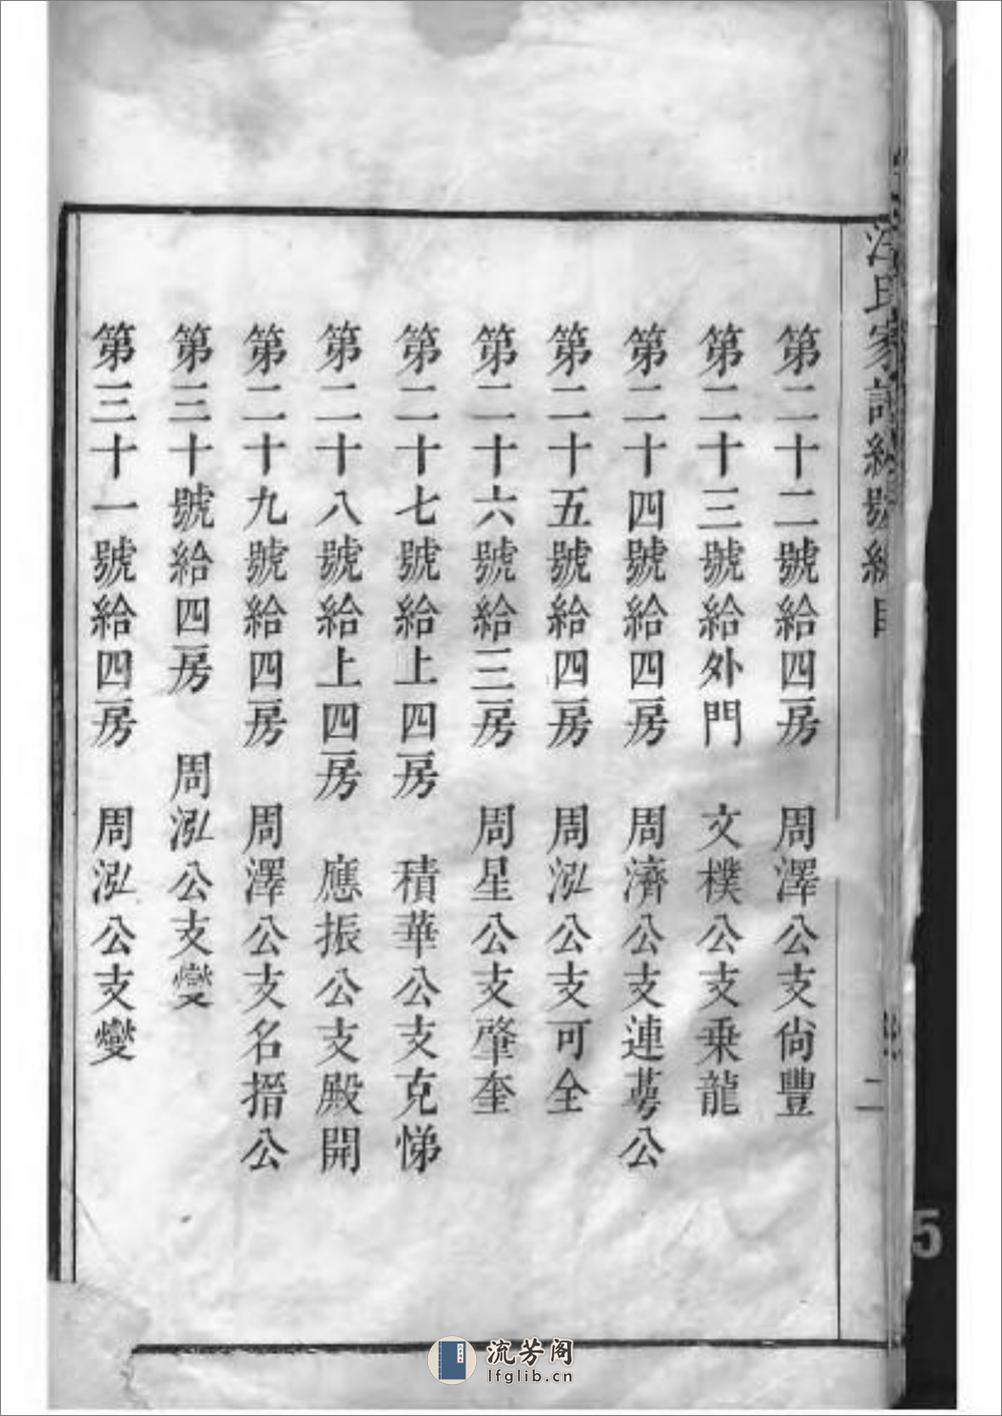 氏家譜給號總目
二
第二十二號給四房 周澤公支尙豐
第二十三號給外門 文樸公支乗龍
第二十四號給四房 周濟公支連蕚公
第二十五號給四房 周泓公支可全
第二十六號給三房 周星公支肇奎
第二十七號給上四房 積華公支克悌
第二十八號給上四房 應振公支殿開
第二十九號給四房 周澤公支名搢公
第三十號給四房 周泓公支燮
第三十一號給四房 周泓公支燮
5
流芳阁
lfglib.cn